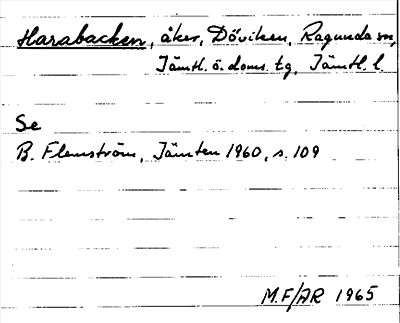 Harabacken, åker, Döviken, Ragunda sn,
Jämtl. ö. doms. tg, Jämtl. l.
Se
B. Flemström, Jämten 1960, s. 109
M.F/AR 1965